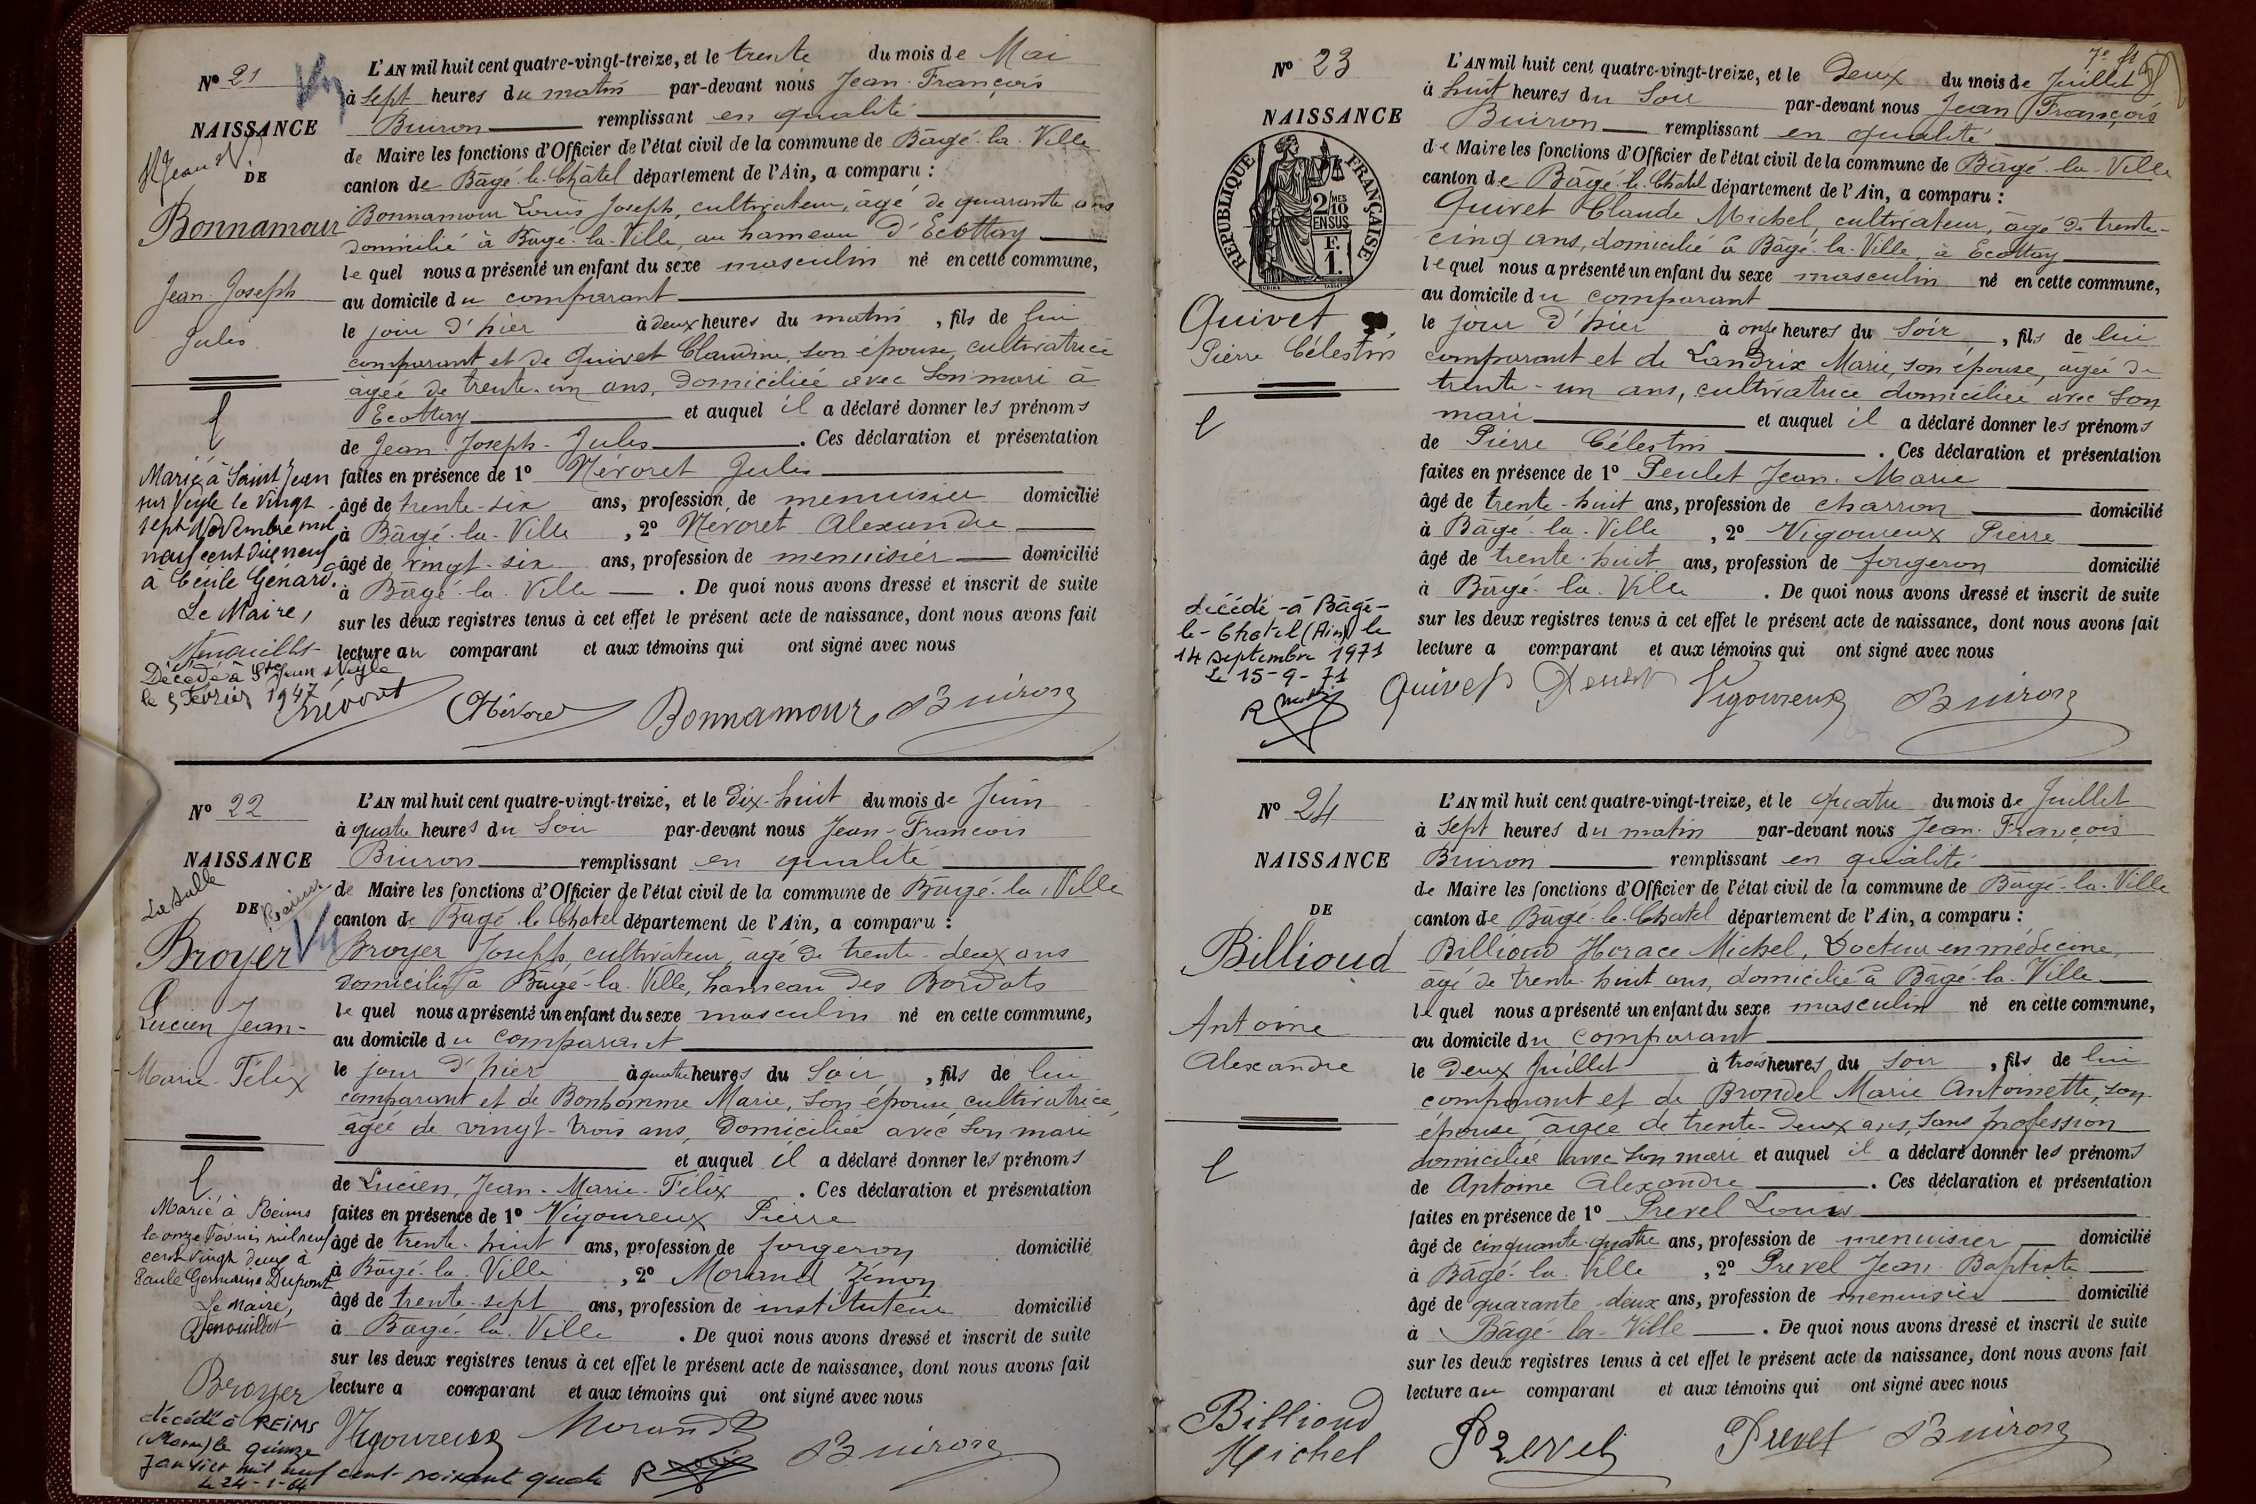 N° 21
NAISSANCE
DE
Bonnamour
Jean-Joseph
Jules
Marié à Saint Jean
sur Veyle le vingt
sept Novembre mil
neuf cent dix neuf
à Cécile Génard.
Le Maire,
Décédé à St Jean s/Veyle
le 5 Février 1947
L'AN mil huit cent quatre-vingt-treize, et le trente du mois de Mai
à sept heures du matin par-devant nous Jean-François
Buiron remplissant en qualité
de Maire les fonctions d'Officier de l'état civil de la commune de Bâgé-la-Ville
canton de Bâgé-le-Chatel département de l'Ain, a comparu :
Bonnamour Louis Joseph, cultivateur, âgé de quarante ans
domicilié à Bâgé-la-Ville, au hameau d'Ecottay
lequel nous a présenté un enfant du sexe masculin né en cette commune,
au domicile du comparant
le jour d'hier à deux heures du matin, fils de lui
comparant et de Quivet Claudine, son épouse, cultivatrice
agée de trente-un ans, domiciliée avec son mari à
Ecottay et auquel il a déclaré donner les prénoms
de Jean-Joseph-Jules. Ces déclaration et présentation
faites en présence de 1° Névoret Jules
âgé de trente-six ans, profession de menuisier domicilié
à Bâgé-la-Ville, 2° Névoret Alexandre
âgé de vingt-six ans, profession de menuisier domicilié
à Bâgé-la-Ville. De quoi nous avons dressé et inscrit de suite
sur les deux registres tenus à cet effet le présent acte de naissance, dont nous avons fait
lecture au comparant et aux témoins qui ont signé avec nous
Névoret Névoret Bonnamour Buiron
N° 22
NAISSANCE
DE
Broyer
Lucien Jean-
Marie-Félix
Marié à Reims
le onze Février mil neuf
cent vingt deux à
Paule Germaine Dupont
Le Maire,
L'AN mil huit cent quatre-vingt-treize, et le dix-huit du mois de Juin
à quatre heures du soir par-devant nous Jean-François
Buiron remplissant en qualité
de Maire les fonctions d'Officier de l'état civil de la commune de Bâgé-la-Ville
canton de Bâgé-le-Chatel département de l'Ain, a comparu :
Broyer Joseph, cultivateur, âgé de trente-deux ans
domicilié à Bâgé-la-Ville, hameau des Bordats
lequel nous a présenté un enfant du sexe masculin né en cette commune,
au domicile du comparant
le jour d'hier à quatre heures du soir, fils de lui
comparant et de Bonhomme Marie, son épouse, cultivatrice,
âgée de vingt-trois ans, domiciliée avec son mari
et auquel il a déclaré donner les prénoms
de Lucien, Jean-Marie-Félix. Ces déclaration et présentation
faites en présence de 1° Vigoureux Pierre
âgé de trente-huit ans, profession de forgeron domicilié
à Bâgé-la-Ville, 2° Morand Zénon
âgé de trente-sept ans, profession de instituteur domicilié
à Bâgé-la-Ville. De quoi nous avons dressé et inscrit de suite
sur les deux registres tenus à cet effet le présent acte de naissance, dont nous avons fait
lecture a comparant et aux témoins qui ont signé avec nous
Broyer Vigoureux Morand Buiron
décédé à REIMS
(Marne) le quinze
janvier mil neuf cent soixante quatre
le 24-1-64
N° 23
NAISSANCE
REPUBLIQUE FRANÇAISE
2/10 MES
EN SUS
F.
1.
Quivet
Pierre Célestin
décédé à Bâgé-
le-Chatel (Ain) le
14 septembre 1971
Le 15-9-71
L'AN mil huit cent quatre-vingt-treize, et le deux du mois de Juillet
à huit heures du soir par-devant nous Jean François
Buiron remplissant en qualité
de Maire les fonctions d'Officier de l'état civil de la commune de Bâgé-la-Ville
canton de Bâgé-le-Chatel département de l'Ain, a comparu :
Quivet Claude Michel, cultivateur, âgé de trente-
cinq ans, domicilié à Bâgé-la-Ville, à Ecottay
lequel nous a présenté un enfant du sexe masculin né en cette commune,
au domicile du comparant
le jour d'hier à onze heures du soir, fils de lui
comparant et de Landrix Marie, son épouse, âgée de
trente-un ans, cultivatrice domiciliée avec son
mari et auquel il a déclaré donner les prénoms
de Pierre Célestin. Ces déclaration et présentation
faites en présence de 1° Penlet Jean-Marie
âgé de trente-huit ans, profession de charron domicilié
à Bâgé-la-Ville, 2° Vigoureux Pierre
âgé de trente-huit ans, profession de forgeron domicilié
à Bâgé-la-Ville. De quoi nous avons dressé et inscrit de suite
sur les deux registres tenus à cet effet le présent acte de naissance, dont nous avons fait
lecture a comparant et aux témoins qui ont signé avec nous
Quivet Vigoureux Buiron
N° 24
NAISSANCE
DE
Billioud
Antoine
Alexandre
L'AN mil huit cent quatre-vingt-treize, et le quatre du mois de Juillet
à sept heures du matin par-devant nous Jean-François
Buiron remplissant en qualité
de Maire les fonctions d'Officier de l'état civil de la commune de Bâgé-la-Ville
canton de Bâgé-le-Chatel département de l'Ain, a comparu :
Billioud Horace Michel, Docteur en médecine,
âgé de trente-huit ans, domicilié à Bâgé-la-Ville
lequel nous a présenté un enfant du sexe masculin né en cette commune,
au domicile du comparant
le deux Juillet à trois heures du soir, fils de lui
comparant et de Brondel Marie Antoinette, son
épouse, âgée de trente-deux ans, sans profession
domiciliée avec son mari et auquel il a déclaré donner les prénoms
de Antoine Alexandre. Ces déclaration et présentation
faites en présence de 1° Prevel Louis
âgé de cinquante-quatre ans, profession de menuisier domicilié
à Bâgé-la-Ville, 2° Prevel Jean-Baptiste
âgé de quarante-deux ans, profession de menuisier domicilié
à Bâgé-la-Ville. De quoi nous avons dressé et inscrit de suite
sur les deux registres tenus à cet effet le présent acte de naissance, dont nous avons fait
lecture au comparant et aux témoins qui ont signé avec nous
Billioud
Michel Prevel Prevel Buiron